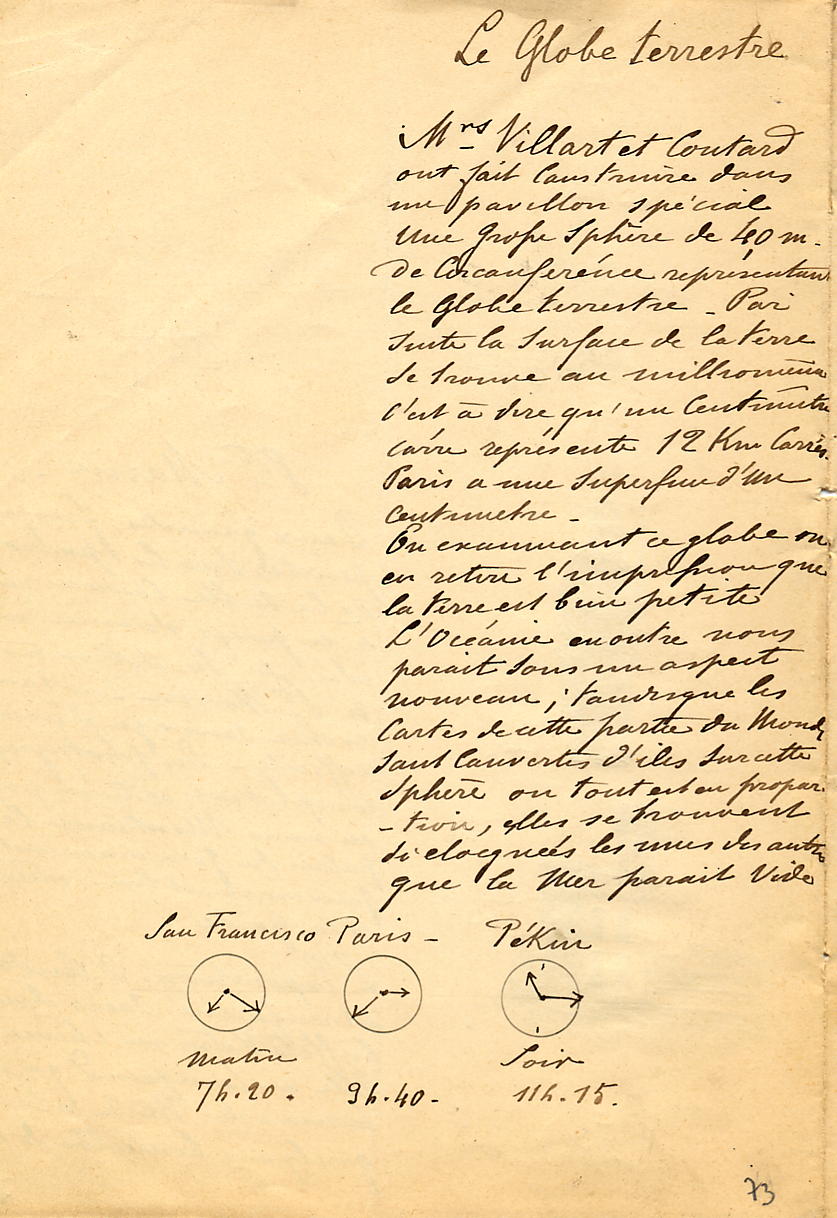 Le Globe terrestre
Mrs Villart et Coutard
ont fait Construire dans
un pavillon spécial
Une Grosse Sphère de 40 m.
de Circonférence représentant
le Globe terrestre - Par
suite la surface de la terre
se trouve au millionième
c'est à dire qu'un Centimètre
carré représente 12 Km Carrés.
Paris a une Superficie d'un
centimetre -
En examinant ce globe on
en retire l'impression que
la terre est bien petite
L'Océanie en outre nous
parait sous un aspect
nouveau ; tandisque les
Cartes de cette partie du Monde
sont Couvertes d'iles sur cette
Sphère ou tout est en propor-
-tion, elles se trouvent
si eloegneés les unes des autres
que la Mer parait Vide
San Francisco Paris - Pékin
Matin Soir
7h.20. 9h.40- 11h.15.
73